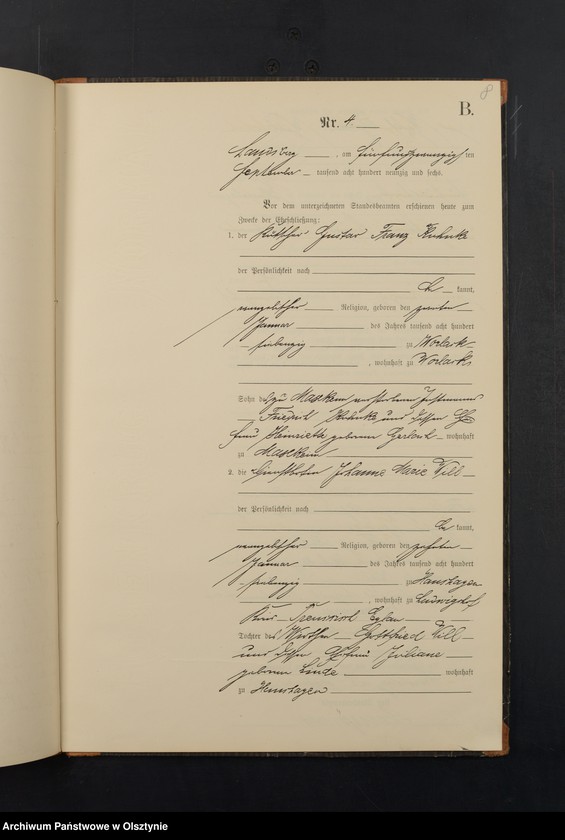 8
B.
Nr. 4.
Landsberg, am fünfundzwanzigsten
September tausend acht hundert neunzig und sechs.
Vor dem unterzeichneten Standesbeamten erschienen heute zum
Zwecke der Eheschließung:
1. der Gustav Franz Kuhnke
der Persönlichkeit nach
be kannt,
evangelischer Religion, geboren den zweiten
Januar des Jahres tausend acht hundert
siebenzig zu Worlack
, wohnhaft zu Worlack
Sohn des zu verstorbenen Instmanns
Friedrich Kuhnke und dessen Ehe
frau Henriette geborenen Gerlach wohnhaft
zu
2. die Johanne Marie Will
der Persönlichkeit nach
be kannt,
evangelischer Religion, geboren den zehnten
Januar des Jahres tausend acht hundert
siebenzig zu Hanshagen
, wohnhaft zu Ludwigshof
Kreis Preussisch Eylau
Tochter des Gottfried Will
und dessen Ehefrau Juliane
geborenen Linde wohnhaft
zu Hanshagen
Archiwum Państwowe w Olsztynie